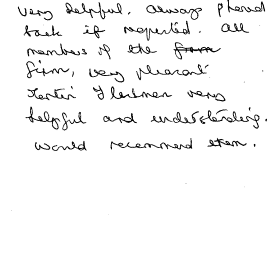 very helpful. always phoned
back if requested. all
members of the
firm, very pleasant
very
helpful and understanding.
would recommend them.